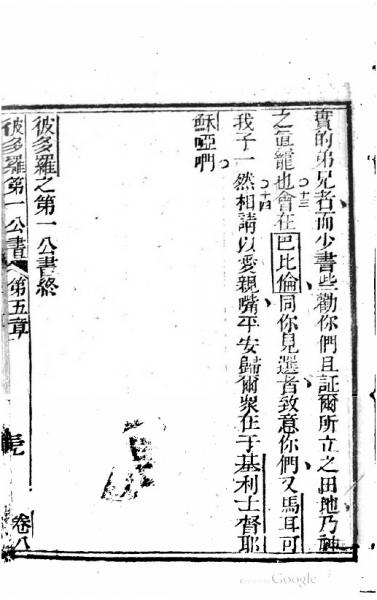 實的弟兄者而少書些勸你們且証爾所立之田地乃神
之寵也會在巴比倫同你見選者致意你們又馬耳可
十三
我子一然相請以愛親嘴平安歸爾衆在于基利士督耶
十四
穌啞㖿
彼多羅之第一公書終
彼多羅第一公書 第五章 卷八
Google